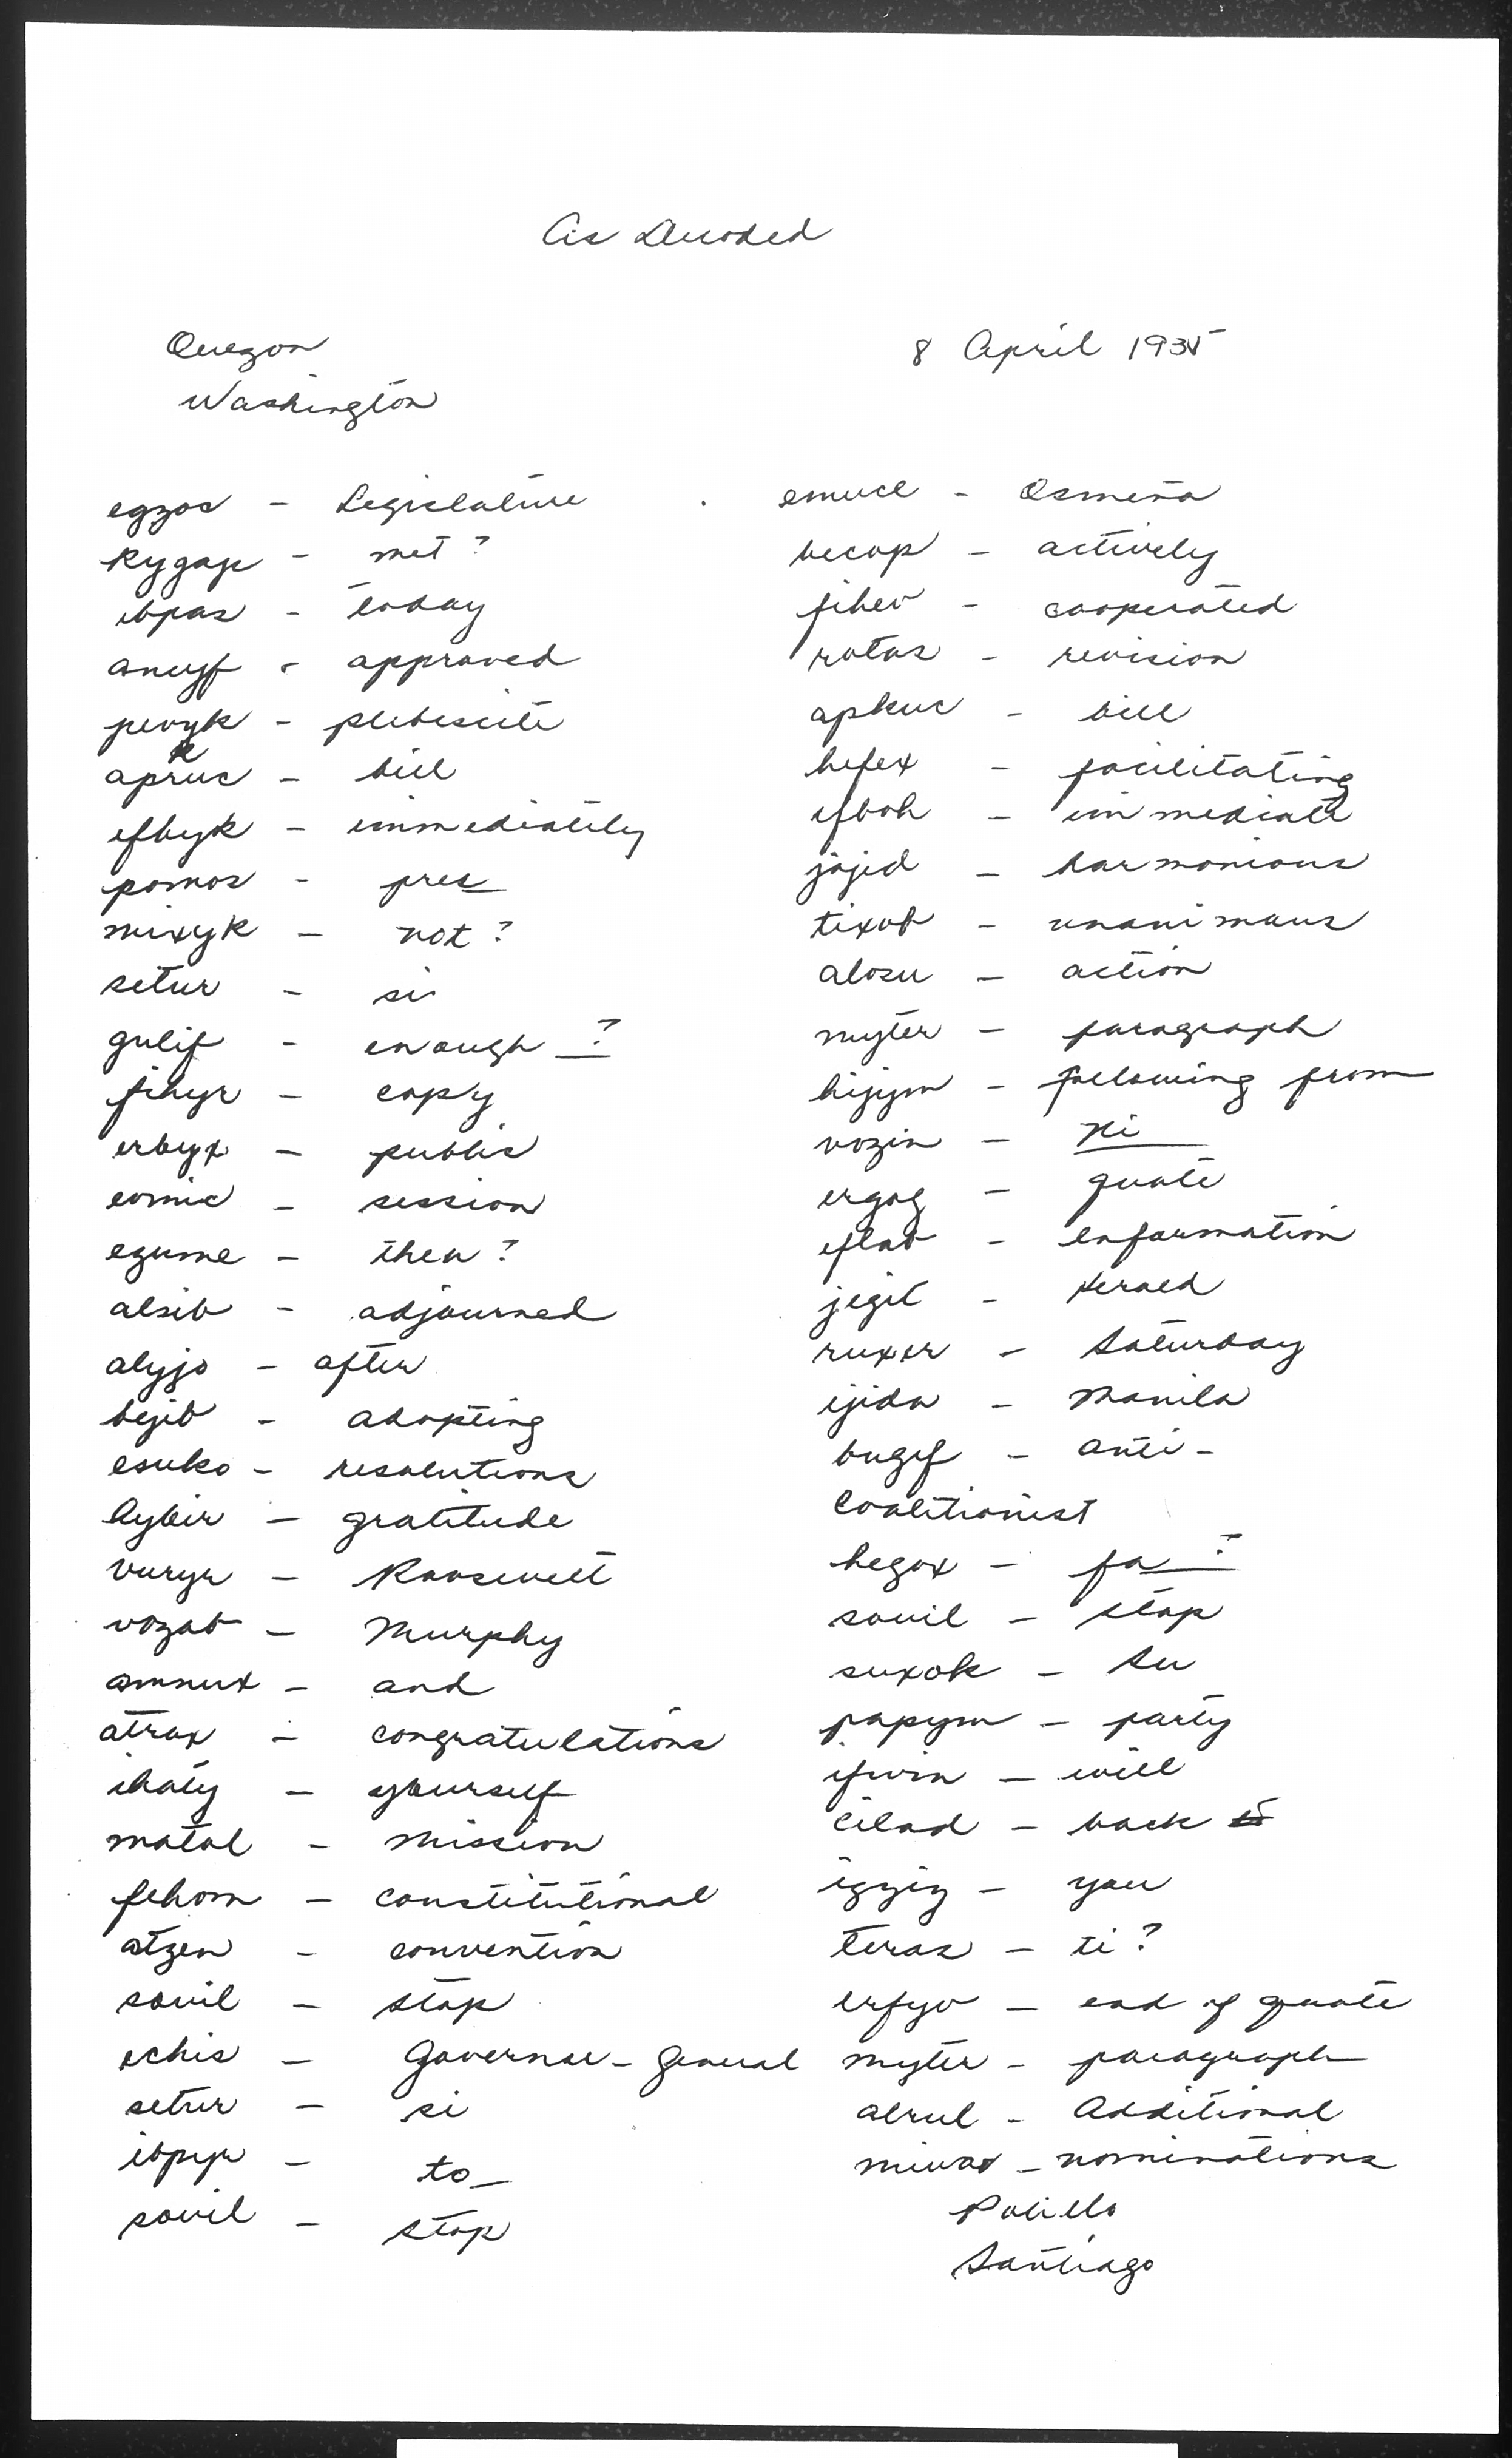 As Decoded
Quezon
8 April 1935
Washington
egzos - Legislature
kygap - met?
ibpas - today
aneyf - approved
pevyk - plebiscite
k
apruc - bill
efbyk - immediately
pomos - pres
mixyk - not?
setur - si
gulif - enough ?
fihyr - copy
erbyx - public
eomic - session
egume - then?
alsib - adjourned
alyjo - after
bejib - adopting
esuko - resolutions
hybir - gratitude
vuryr - Roosevelt
vozab - Murphy
amnux - and
atrax - congratulations
ihaty - yourself
matal - mission
fehom - constitutional
atzen - convention
sovil - stop
echis - Governor-General
setur - si
ibpyr - to
sovil - stop
emuce - Osmeña
becop - actively
fihev - cooperated
rotas - revision
apkuc - bill
hefex - facilitating
efboh - immediate
jajed - harmonious
tixob - unanimous
alosu - action
myter - paragraph
hijym - following from
vozin - ni
ergog - quote
eflab - information
jegil - Herald
ruxer - Saturday
ijida - Manila
bugyf - anti-
Coalitionist
hegox - fa ?
sovil - stop
suxok - su
papym - party
ifwin - will
cilad - back
igyig - you
teras - ti?
erfyo - end of quote
myter - paragraph
alrul - Additional
miwat - nominations
Polillo
Santiago